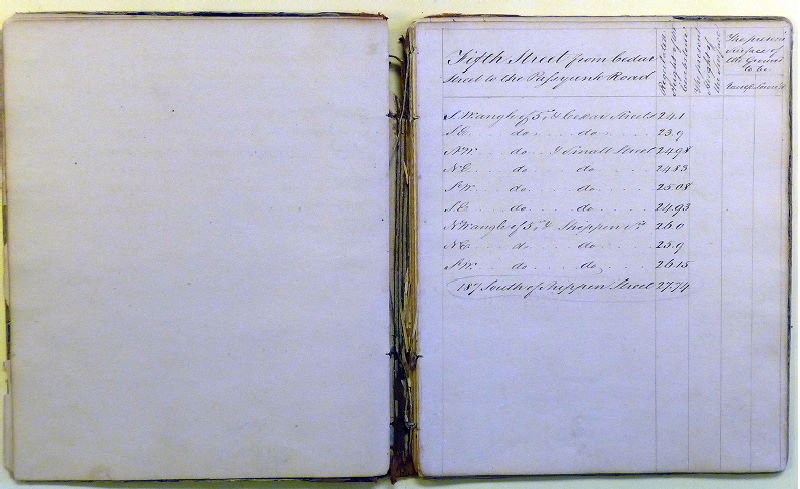 Fifth Street from Cedar
Street to the Passyunk Road
Regulated
Height of the
Curbstone
The present
Height of
the Surface
The present
Surface of
the Ground
to be
raised
S.W. angle of 5th & Cedar Streets 24.1
S.E. do do 23.9
N.W. do & Small Street 24.98
N.E. do do 24.83
S.W. do do 25.08
S.E. do do 24.93
N.W. angle of 5th & Shippen St. 26.0
N.E. do do 25.9
S.W. do do 26.15
187 South of Shippen Street 27.74